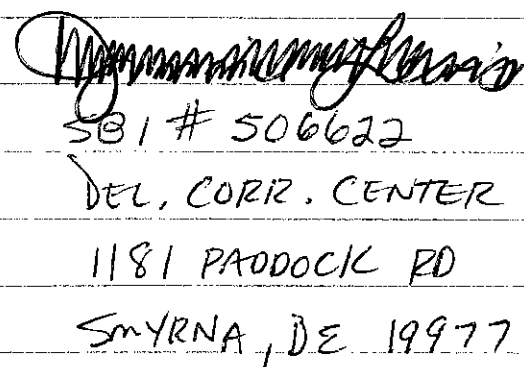 SBI # 506622
DEL. CORR. CENTER
1181 PADDOCK RD
SMYRNA, DE 19977